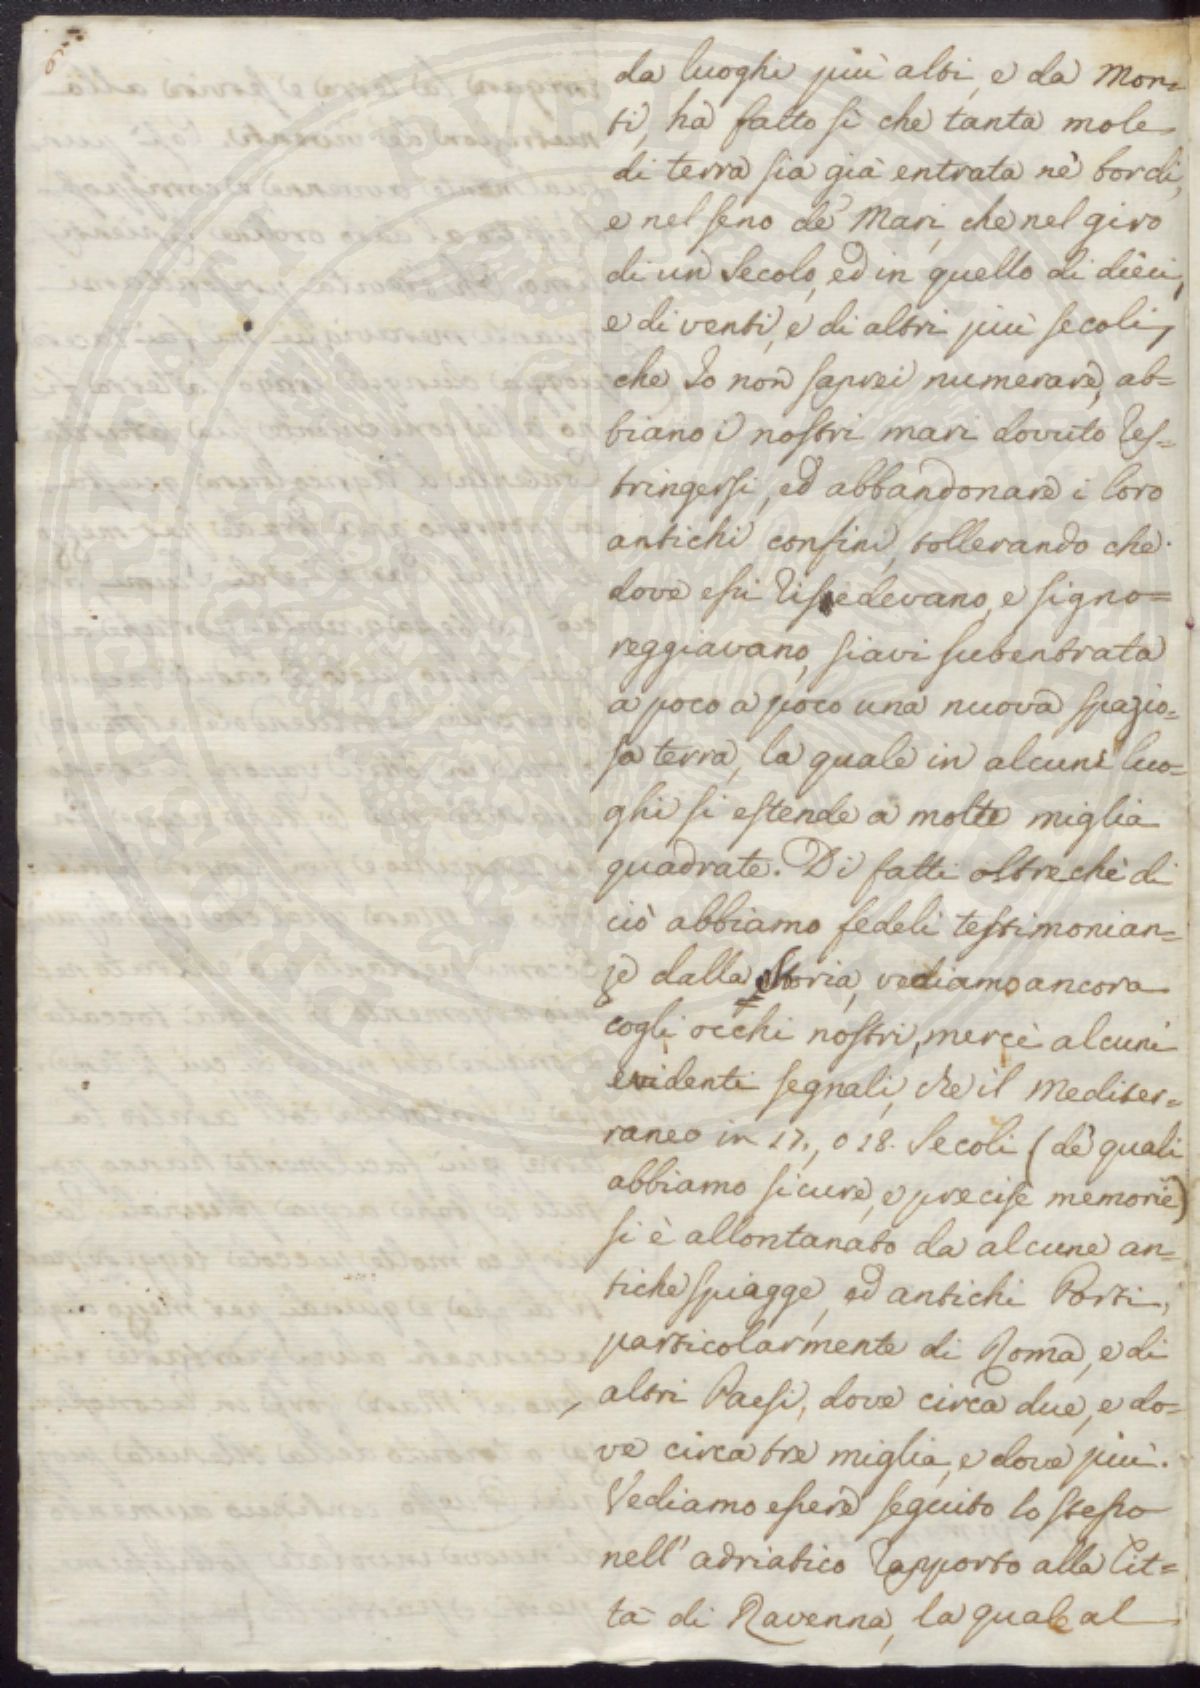 da luoghi più alti, e da Mon=
ti, ha fatto sì che tanta mole
di terra sia già entrata nè bordi,
e nel seno de' Mari, che nel giro
di un Secolo, ed in quello di dieci,
e di venti, e di altri più secoli,
che Io non saprei numerare, ab=
biano i nostri mari dovuto res=
tringersi, ed abbandonare i loro
antichi confini, tollerando che
dove essi risiedevano, e signo=
reggiavano, siavi subentrata
a poco a poco una nuova spazio=
sa terra, la quale in alcuni luo=
ghi si estende a molte miglia
quadrate. Di fatti oltreche di
ciò abbiamo fedeli testimonian=
ze dalla Storia, vediamo ancora
cogli occhi nostri, mercè alcuni
evidenti segnali, che il Mediter=
raneo in 17., o 18. Secoli (de' quali
abbiamo sicure, e precise memorie)
si è allontanato da alcune an=
tiche spiagge, ed antichi Porti,
particolarmente di Roma, e di
altri Paesi, dove circa due, e do=
ve circa tre miglia, e dove più.
Vediamo essere seguito lo stesso
nell' adriatico rapporto alla Cit=
tà di Ravenna, la quale al